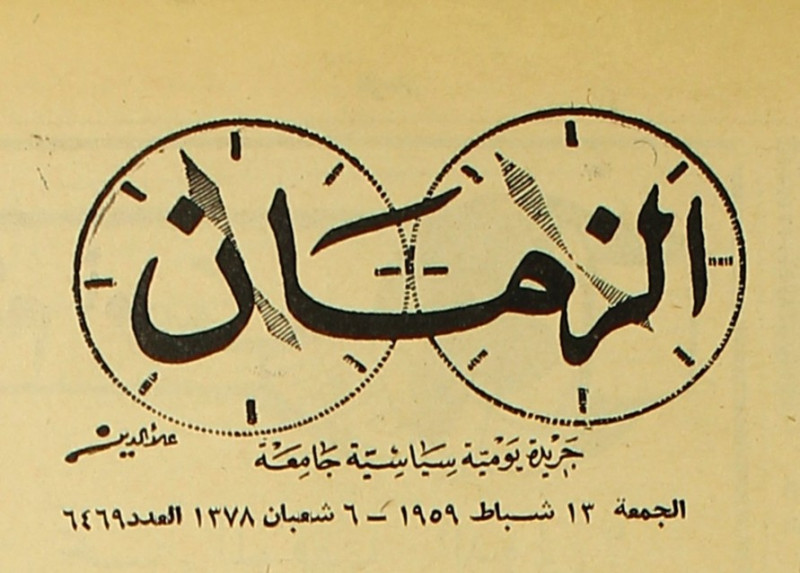 الزمان
علاء الدين
جريدة يومية سياسية جامعة
الجمعة ١٣ شباط ١٩٥٩ - ٦ شعبان ١٣٧٨ العدد ٦٤٦٩